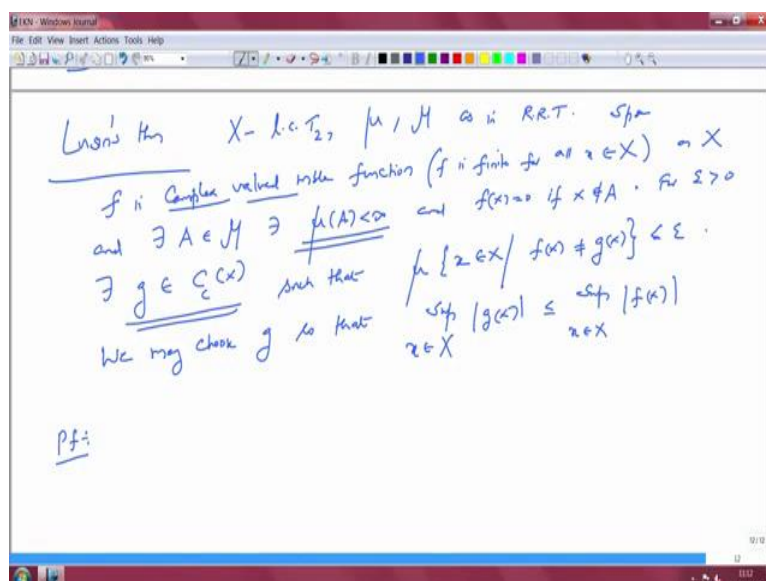 EKN - Windows Journal
File Edit View Insert Actions Tools Help
Lusin's thm X - l.c. T₂, μ, M as in R.R.T. Spse
f is Complex valued mble function (f is finite for all x ∈ X) on X
and ∃ A ∈ M ∋ μ(A) < ∞ and f(x) = 0 if x ∉ A. For ε > 0
∃ g ∈ C_c(X) such that μ{x ∈ X / f(x) ≠ g(x)} ≤ ε.
We may choose g so that sup_{x ∈ X} |g(x)| ≤ sup_{x ∈ X} |f(x)|
Pf:
12/12
12
11:12